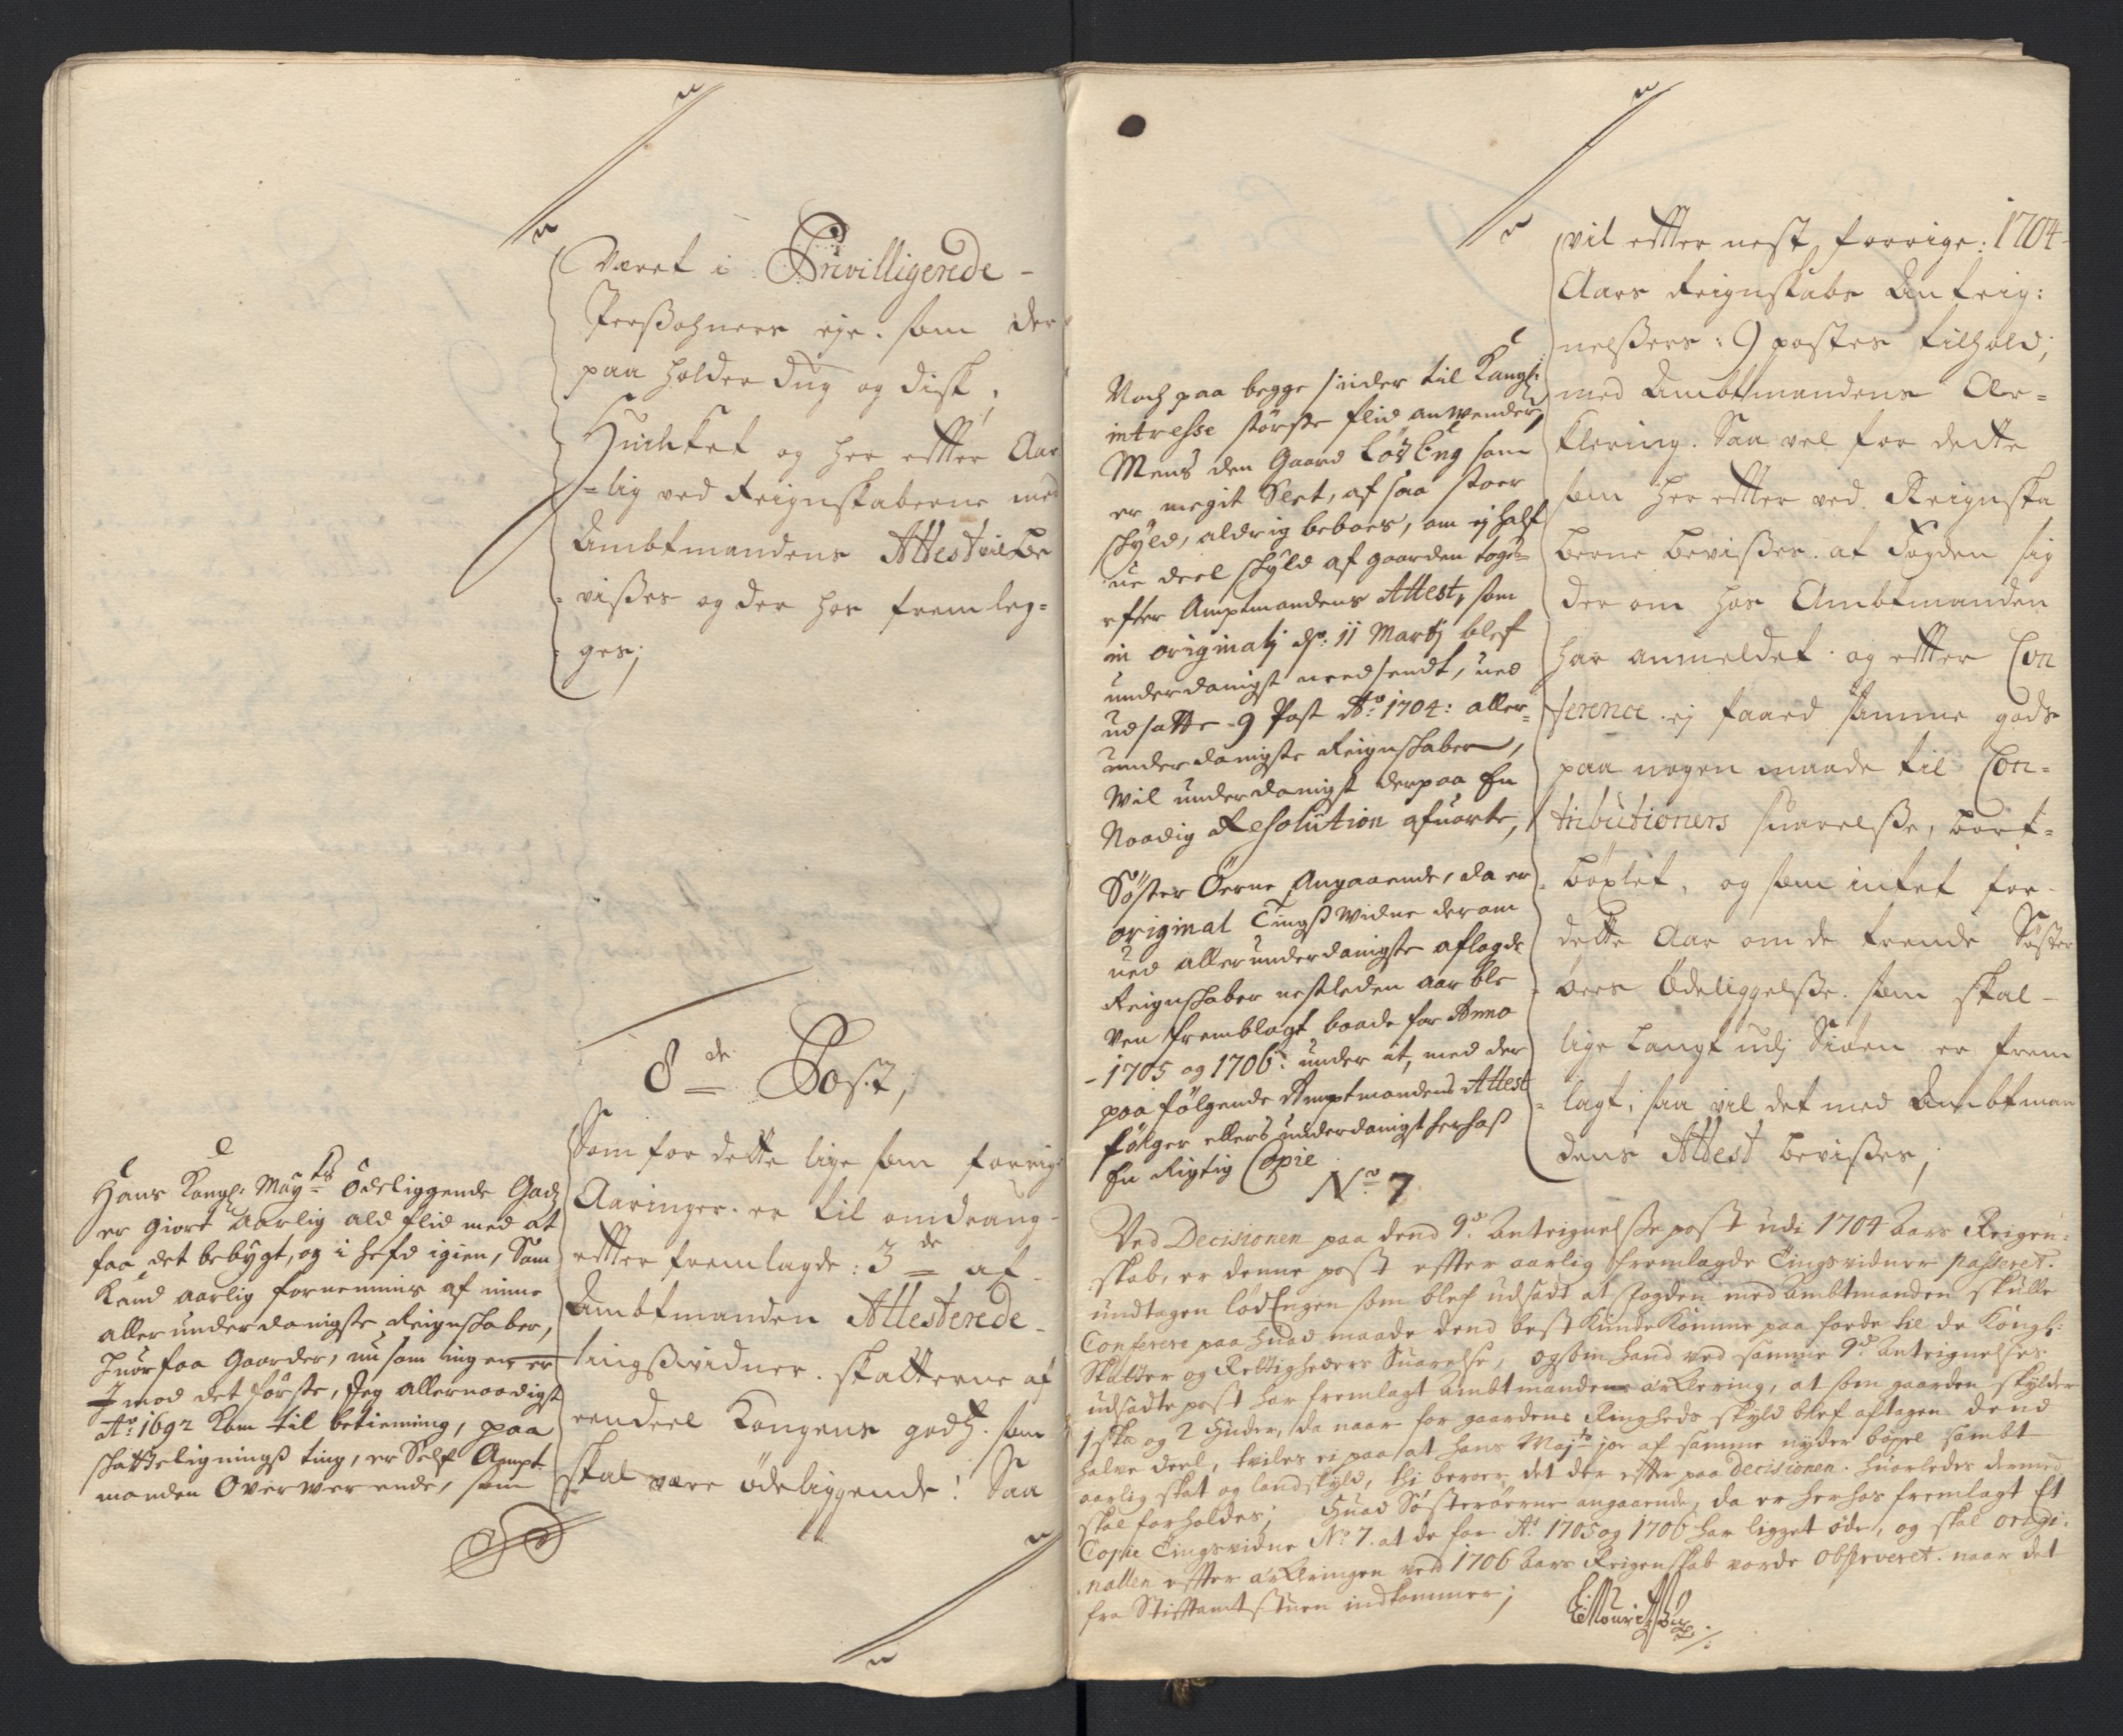 været i Privilligerede
Persohners eje. som der
paa holder dug og disk,
Huilket og her efter Aar
=lig ved Reignskaberne med
Ambtmandens Attest vil be
visses og der hos fremleg=
ges;
8de Post,
Som for dette lige som forrige
Aaringer. er til omdrang
efter fremlagde: 3de af
Ambtmanden Attesterede
tingswidner. skatterne af
eendeel Kongens godtz. som
skal være ödeliggende! Saa
Hans Kongl: Mayts Ödeliggende Godz
er giort Aarlig ald flid med at
faa det bebygt, og i hefd igien, Som
Kand aarlig fornemmis af mine
allerunderdanigste Reignskaber,
huor faa Gaarder, nu som ingen er
Imod det förste, Jeg allernaadigst
Ao: 1692 kom til betiening, paa
skatteligningss ting, er Self Ampt
manden Overwerende, som
Noch paa begge sider til Kongl:
intresse störste flid anwender,
Mens den Gaard Lös Eng som
er megit Slet, af saa stoer
skyld, aldrig beboes, om ej half
ue deel skyld af gaarden toges
efter Amptmandens Attest, som
in originali d: 11 Martij blef
underdanigst needsendt, ued
udsatte 9 Post Ao: 1704: aller=
underdanigste Reignskaber,
Wil underdanigst derpaa En
Naadig Resolution afuarte,
Söster Öerne Angaaende, da er
original Tingss Widne derom
ued allerunderdanigste aflagde
Reignskaber nestleden aar ble
ven fremblagt baade for Anno
1705 og 1706: under it, med der
paa fölgende Amptmandens Attest
fölger ellers underdanigst herhoss
En Rigtig Copie
No 7
vil efter nest forrige: 1704
Aars Reignskabs Anteig:
nelssers: 9 postes tilhold;
med Ambtmandens Er=
klering. Saa vel for dette
som her efter ved. Reignska
berne bevisses. at Fogden sig
der om hos Ambtmanden
har anmeldet. og efter Con
ference ej faaed samme gods
paa nogen maade til Con=
tributioners suarelsse, bort=
böxlet, og som intet for
dette Aar om de trende Söster
öers Ödeliggelsse. som skal
lige langt udj Siöen er frem
lagt, saa vil det med Ambtman
dens Attest bevisses,
Ved Decisionen paa dend 9de Anteignelsse post udi 1704 Aars Reigen=
skab, er denne post effter aarlig fremlagde Tingsvidner passeret.
undtagen lödEngen som blef udsadt at fogden med Ambtmanden skulle
Conferere paa huad maade dend best Kunde Komme paa fode til de Kongl:
Skatter og Rettigheders Suarelse, ogsom hand ved samme 9de Antegnelses
udsadte post har fremlagt Ambtmandens ærklering, at som gaarden skylder
1 skp og 2 Huder, da naar for gaardens Ringheds skyld blef aftagen dend
halve deel, tviles ei paa at hans Majts jo af samme nyder böxel sambt
aarlig skat og landskyld, thj beroer det der efter paa decisionen. huorledes dermed
skal forholdes; Huad Sösteröerne angaaende, da er herhos fremlagt Et
Copie Tingsvidne No 7. at de for Ao 1705 og 1706 har ligget öde, og skal origi:
nallen effter ærkleringen ved 1706 Aars Reigenskab vorde observeret. naar det
fra Stifftamtstuen indkommer;